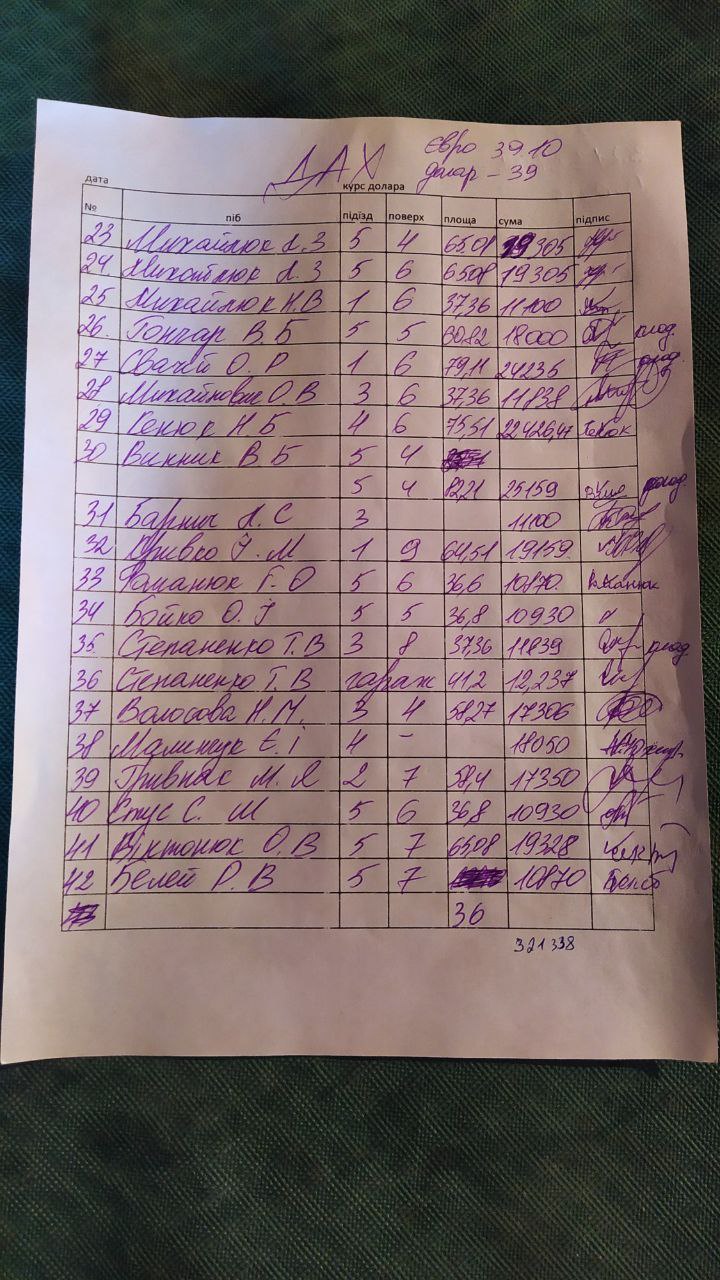 ДАХ Євро 39.10
дата курс долара долар - 39
№ піб підїзд поверх площа сума підпис
23 Михайлюк Л.З 5 4 65,08 19305
24. Михайлюк Л.З 5 6 6508 19305
25 Михайлюк Н.В 1 6 37,36 11100
26. Гончар В.Б 5 5 60.82 18000
27 Свачей О.Р 1 6 79,11 24235
28 Михайлович О.В 3 6 37,36 11838
29 Кенюк Н Б 4 6 75,51 22426,47
30 Винник В.Б 5 4
5 4 82,21 25159
31 Л.С 3 11100
32 Кривко М 1 9 64,51 19159.
33 Романюк Г.О 5 6 36,6 10870.
34 Бойко О.І 5 5 36,8 10930
35 Степаненко Т.В 3 8 37,36 11839
36 Степаненко Т.В гараж 41,2 12,237
37 Волосова Н.М. 3 4 58,27 17306
38 Є.І 4 - 18050
39 М.Я 2 7 58,4 17350
40 С. М 5 6 36,8 10930
41 Віктонюк О.В 5 7 6508 19328
42 Белей Р.В 5 7 10870
36
321338